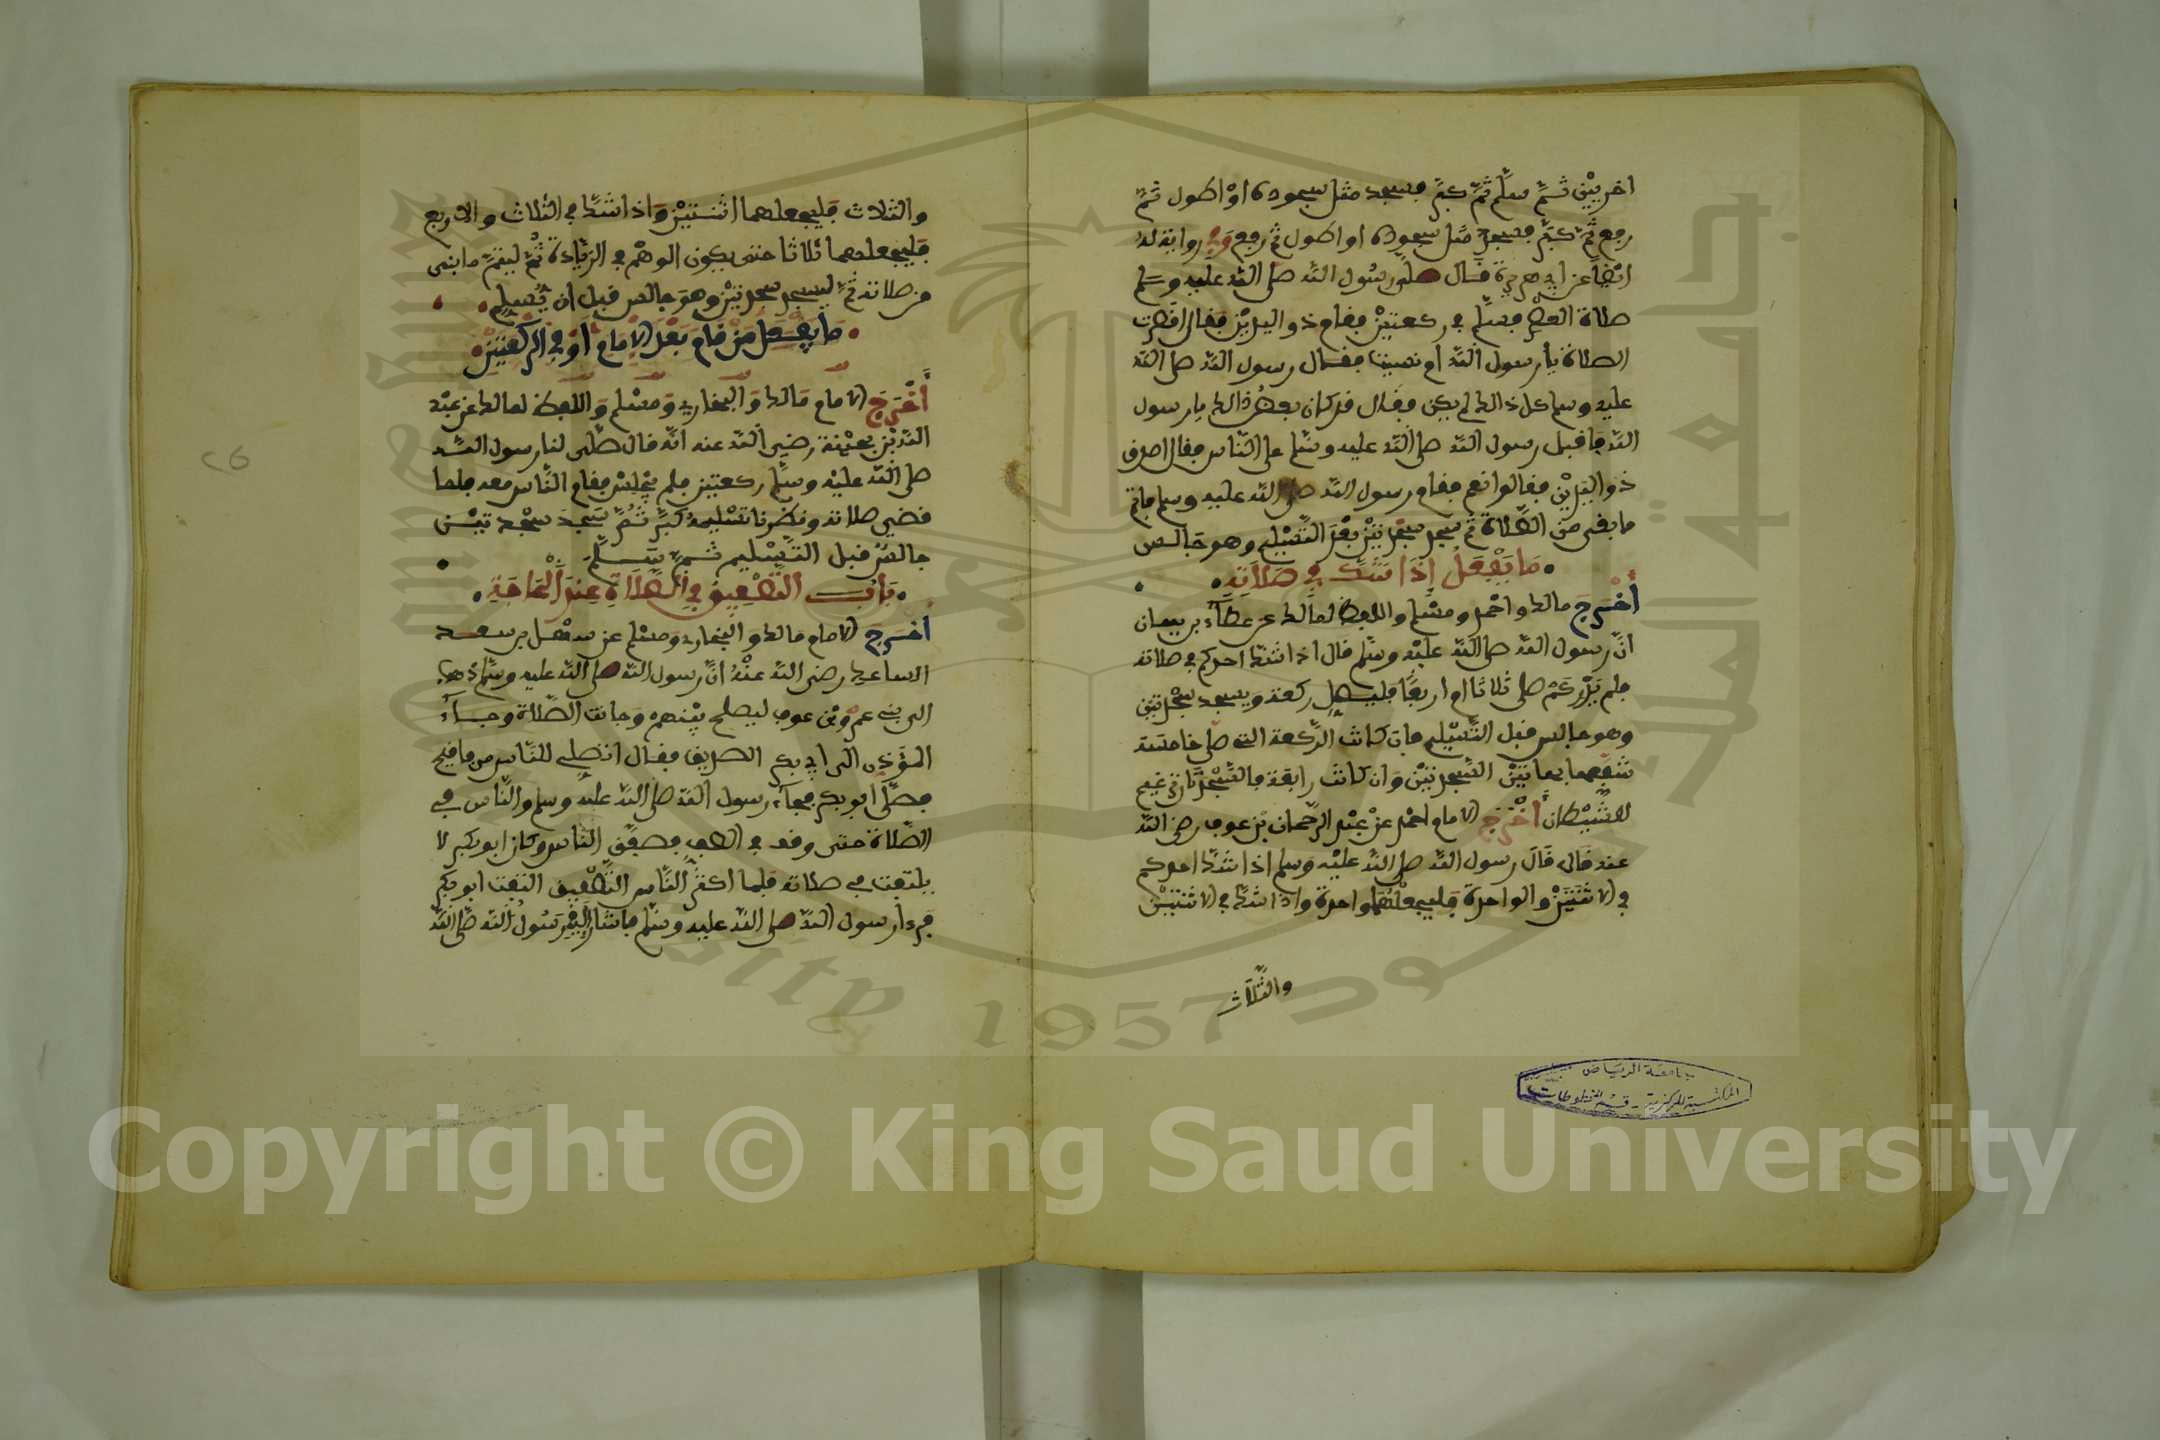 اخريين ثم سلم ثم كبر فسجد مثل سجوده او اطول ثم
رفع ثم كبر فسجد مثل سجوده او اطول ثم رفع وفي رواية له
ايضا عن ابي هريرة قال صلى رسول الله صلى الله عليه وسلم
صلاة العصر فسلم في ركعتين فقام ذو اليدين فقال اقصرت
الصلاة يا رسول الله ام نسيت فقال رسول الله صلى الله
عليه وسلم كل ذالك لم يكن فقال قد كان بعض ذالك يا رسول
الله فاقبل رسول الله صلى الله عليه وسلم على الناس فقال اصدق
ذو اليدين فقالوا نعم فقام رسول الله صلى الله عليه وسلم فاتم
ما بقي من الصلاة ثم سجد سجدتين بعد التسليم وهو جالس
ما يفعل إذا شك في صلاته
أخرج مالك واحمد ومسلم واللفظ لمالك عن عطاء بن يسار
ان رسول الله صلى الله عليه وسلم قال اذا شك احدكم في صلاته
فلم يدر كم صلى ثلاثا او اربعا فليصل ركعة ويسجد سجدتين
وهو جالس قبل التسليم فان كانت الركعة التي صلى خامسة
شفعها بهاتين السجدتين وان كانت رابعة فالسجدتان ترغيم
للشيطان أخرج الامام احمد عن عبد الرحمان بن عوف رضي الله
عنه قال قال رسول الله صلى الله عليه وسلم اذا شك احدكم
في الاثنتين والواحدة فليجعلهما واحدة واذا شك في الاثنتين
والثلاث
جامعة الرياض
المكتبة المركزية - قسم المخطوطات
والثلاث فليجعلهما اثنتين واذا شك في الثلاث والاربع
فليجعلهما ثلاثا حتى يكون الوهم في الزيادة ثم ليتم ما بقي
من صلاته ثم ليسجد سجدتين وهو جالس قبل ان يسلم
ما يفعل من قام بعد الإمام أو في الركعتين
أخرج الامام مالك والبخاري ومسلم واللفظ لمالك عن عبد
الله بن بحينة رضي الله عنه انه قال صلى لنا رسول الله
صلى الله عليه وسلم ركعتين فلم يجلس فقام الناس معه فلما
قضى صلاته ونظرنا تسليمه كبر ثم سجد سجدتين
جالس قبل التسليم ثم سلم
باب التصفيق في الصلاة عند الحاجة
أخرج الامام مالك والبخاري ومسلم عن سهل بن سعد
الساعدي رضي الله عنه ان رسول الله صلى الله عليه وسلم ذهب
الى بني عمرو بن عوف ليصلح بينهم وحانت الصلاة وجاء
المؤذن الى ابي بكر الصديق فقال اتصلي للناس
فصلى ابو بكر فجاء رسول الله صلى الله عليه وسلم والناس في
الصلاة حتى وقف في الصف فصفق الناس وكان ابو بكر لا
يلتفت في صلاته فلما اكثر الناس التصفيق التفت ابو بكر
فرءا رسول الله صلى الله عليه وسلم فاشار اليه رسول الله صلى الله
26
1957
Copyright © King Saud University